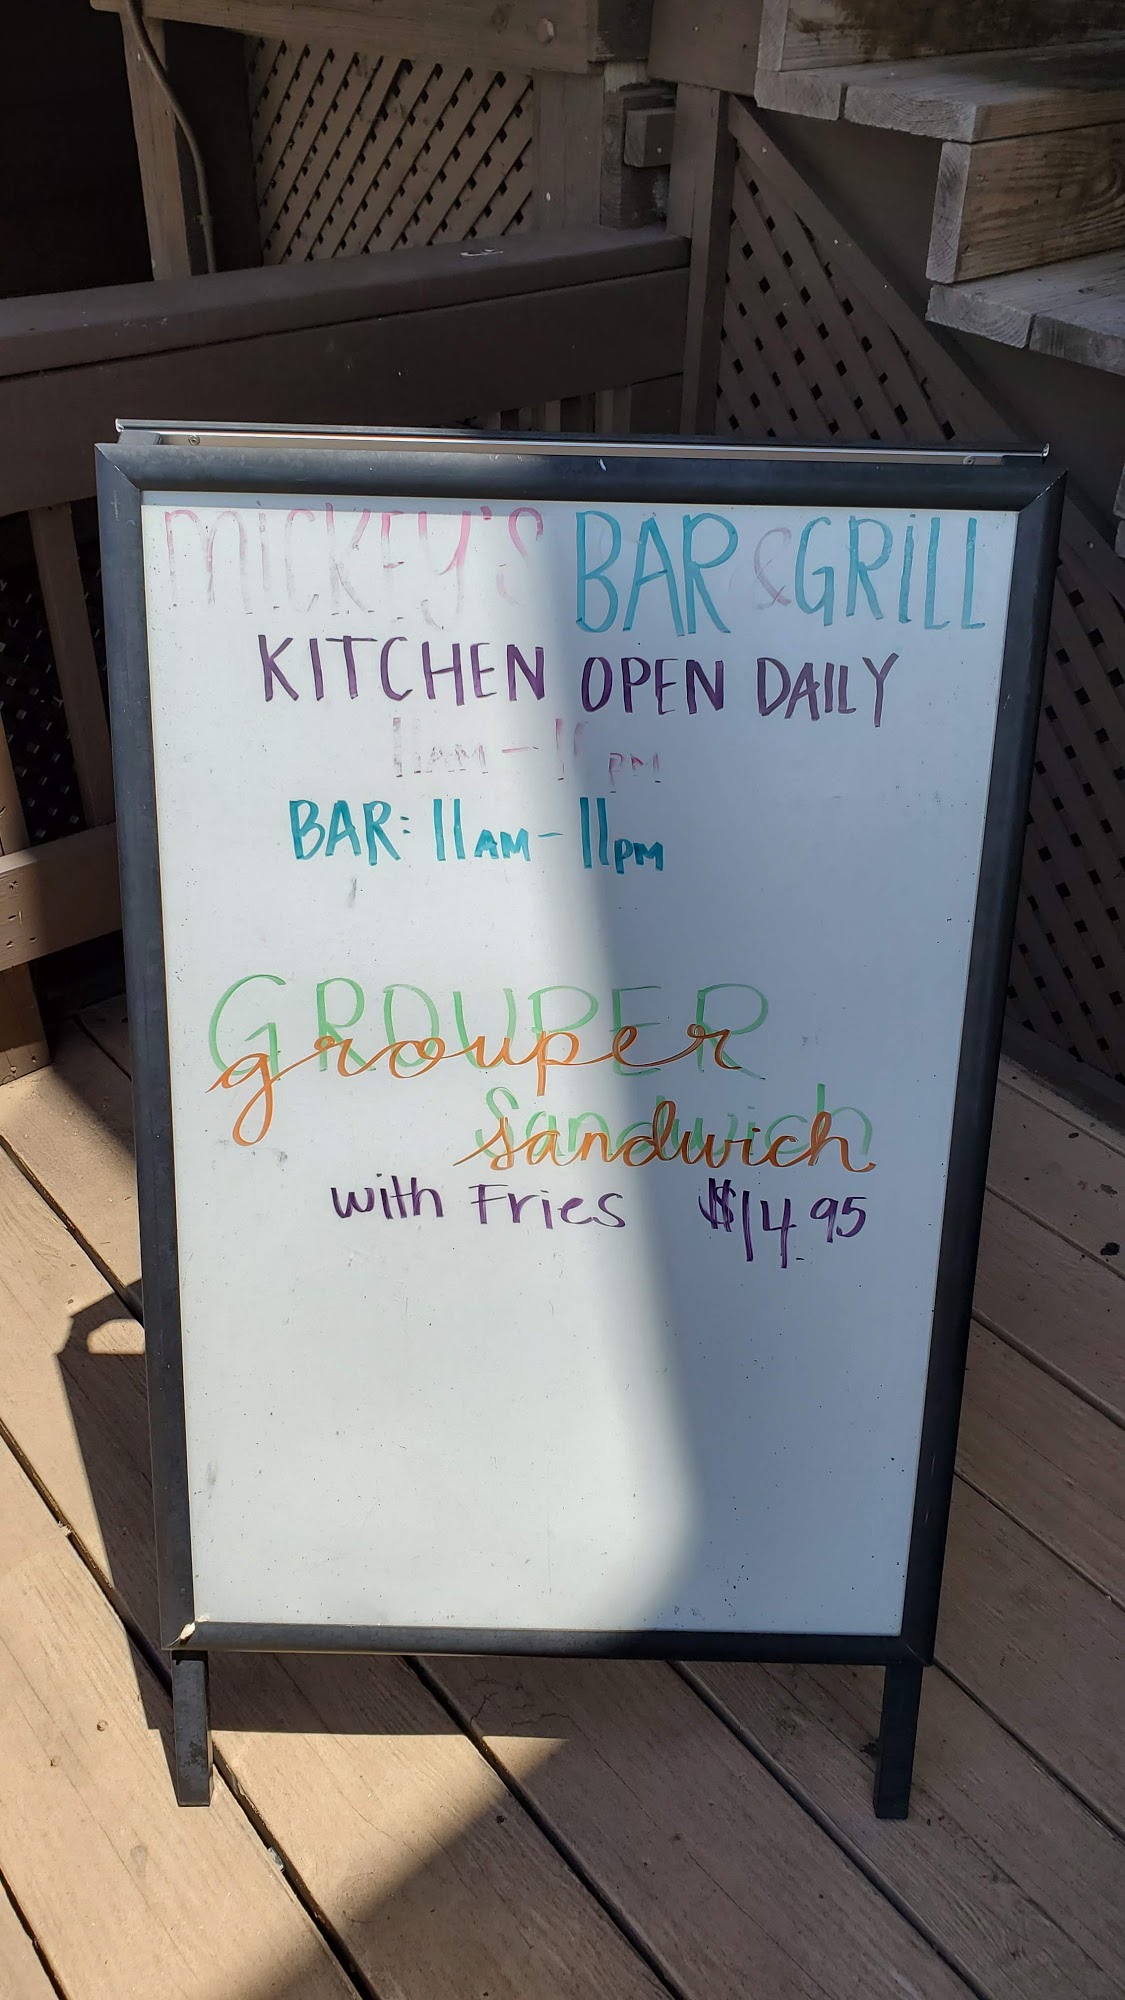 MICKEY'S BAR & GRILL
KITCHEN OPEN DAILY
11AM - PM
BAR: 11AM - 11PM
GROUPER
grouper
Sandwich
sandwich
with Fries $14.95